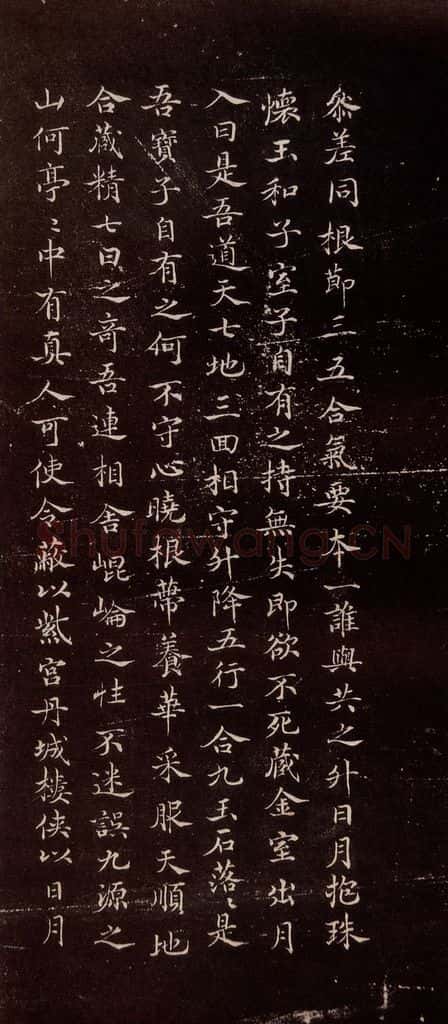 参差同根節三五合氣要本一誰與共之升日月抱珠
懷玉和子室子自有之持無失即欲不死藏金室出月
入日是吾道天七地三回相守升降五行一合九玉石落〻是
吾寶子自有之何不守心曉根蔕養華采服天順地
合藏精七日之奇吾連相舍崐崘之性不迷誤九源之
山何亭〻中有真人可使令蔽以紫宮丹城樓俠以日月
Shufawang.CN